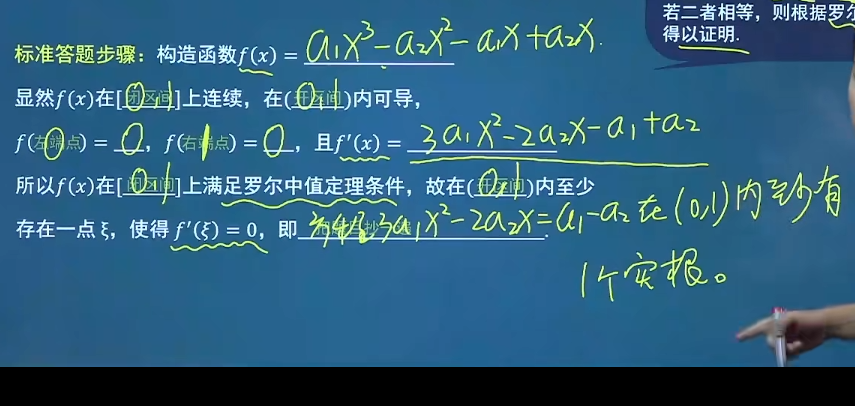 若二者相等，则根据罗尔
得以证明.
标准答题步骤：构造函数f(x) = a₁x³-a₂x²-a₁x+a₂x.
显然f(x)在[0,1]上连续，在(0,1)内可导，
f(0) = 0，f(1) = 0，且f′(x) = 3a₁x²-2a₂x-a₁+a₂
所以f(x)在[0,1]上满足罗尔中值定理条件，故在(0,1)内至少
存在一点ξ，使得f′(ξ) = 0，即 3a₁x²-2a₂x=a₁-a₂在(0,1)内至少有
1个实根。